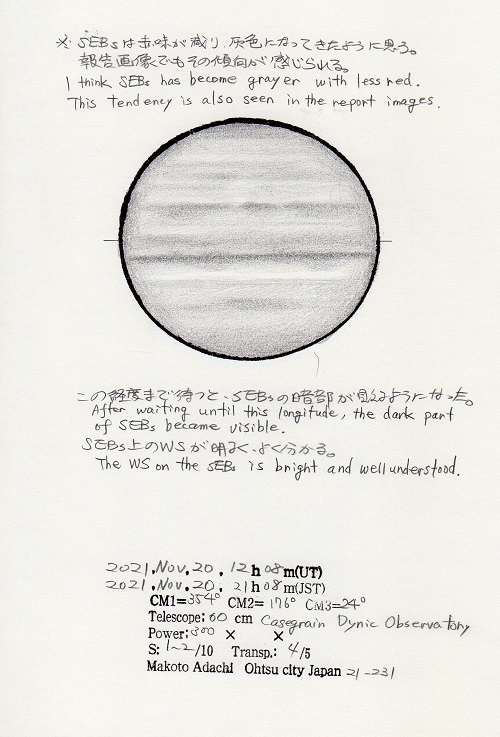 ※ SEBsは赤味が減り、灰色になってきたように思う。
報告画像でもその傾向が感じられる。
I think SEBs has become grayer with less red.
This tendency is also seen in the report images.
この経度まで待つと、SEBsの暗部が見えるようになった。
After waiting until this longitude, the dark part
of SEBs became visible.
SEBs上のWSが明るく、よく分かる。
The WS on the SEBs is bright and well understood.
2021.Nov.20, 12h 08m(UT)
2021.Nov.20, 21h 08m(JST)
CM1=354° CM2= 176° CM3=24°
Telescope; 60 cm Casegrain Dynic Observatory
Power; 300 × ×
S: 1~2/10 Transp.: 4/5
Makoto Adachi Ohtsu city Japan 21-231